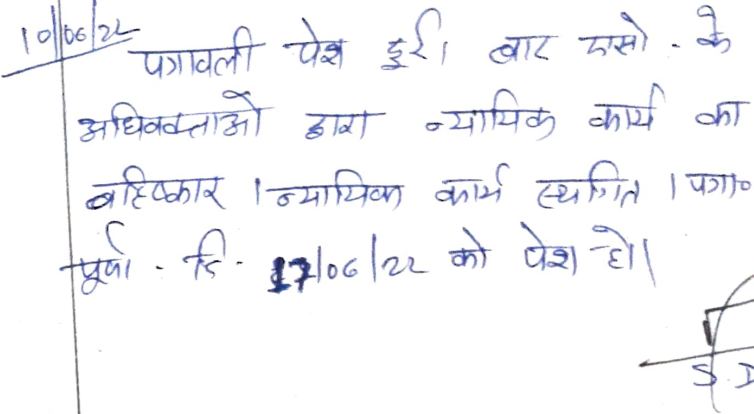 10/06/22
पत्रावली पेश हुई। बार एसो. के
अधिवक्ताओं द्वारा न्यायिक कार्य का
बहिष्कार । न्यायिक कार्य स्थगित । पत्रा०
पूर्वा. दि. 17/06/22 को पेश हो।
S.D